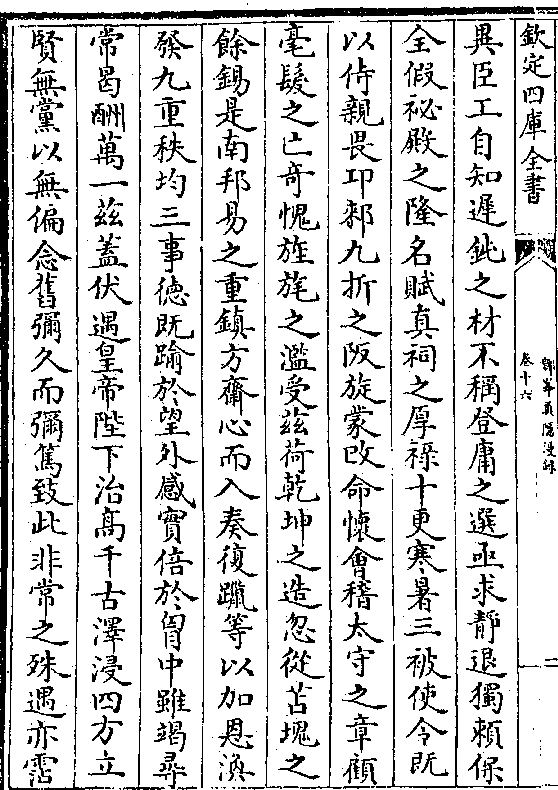 欽定四庫全書
卷十六
鄮峯真隱漫録
二
異臣工自知遲鈍之材不稱登庸之選亟求靜退獨賴保
全假祕殿之隆名賦真祠之厚禄十更寒暑三被使令既
以侍親畏卭郲九折之阪旋蒙改命懷會稽太守之章顧
毫髮之亡奇愧旌旄之濫受茲荷乾坤之造忽從苫塊之
餘錫是南邦易之重鎮方齋心而入奏復躐等以加恩渙
發九重秩均三事德既踰於望外感實倍於胷中雖竭尋
常曷酬萬一茲蓋伏遇皇帝陛下治髙千古澤浸四方立
賢無黨以無偏念舊彌久而彌篤致此非常之殊遇亦霑